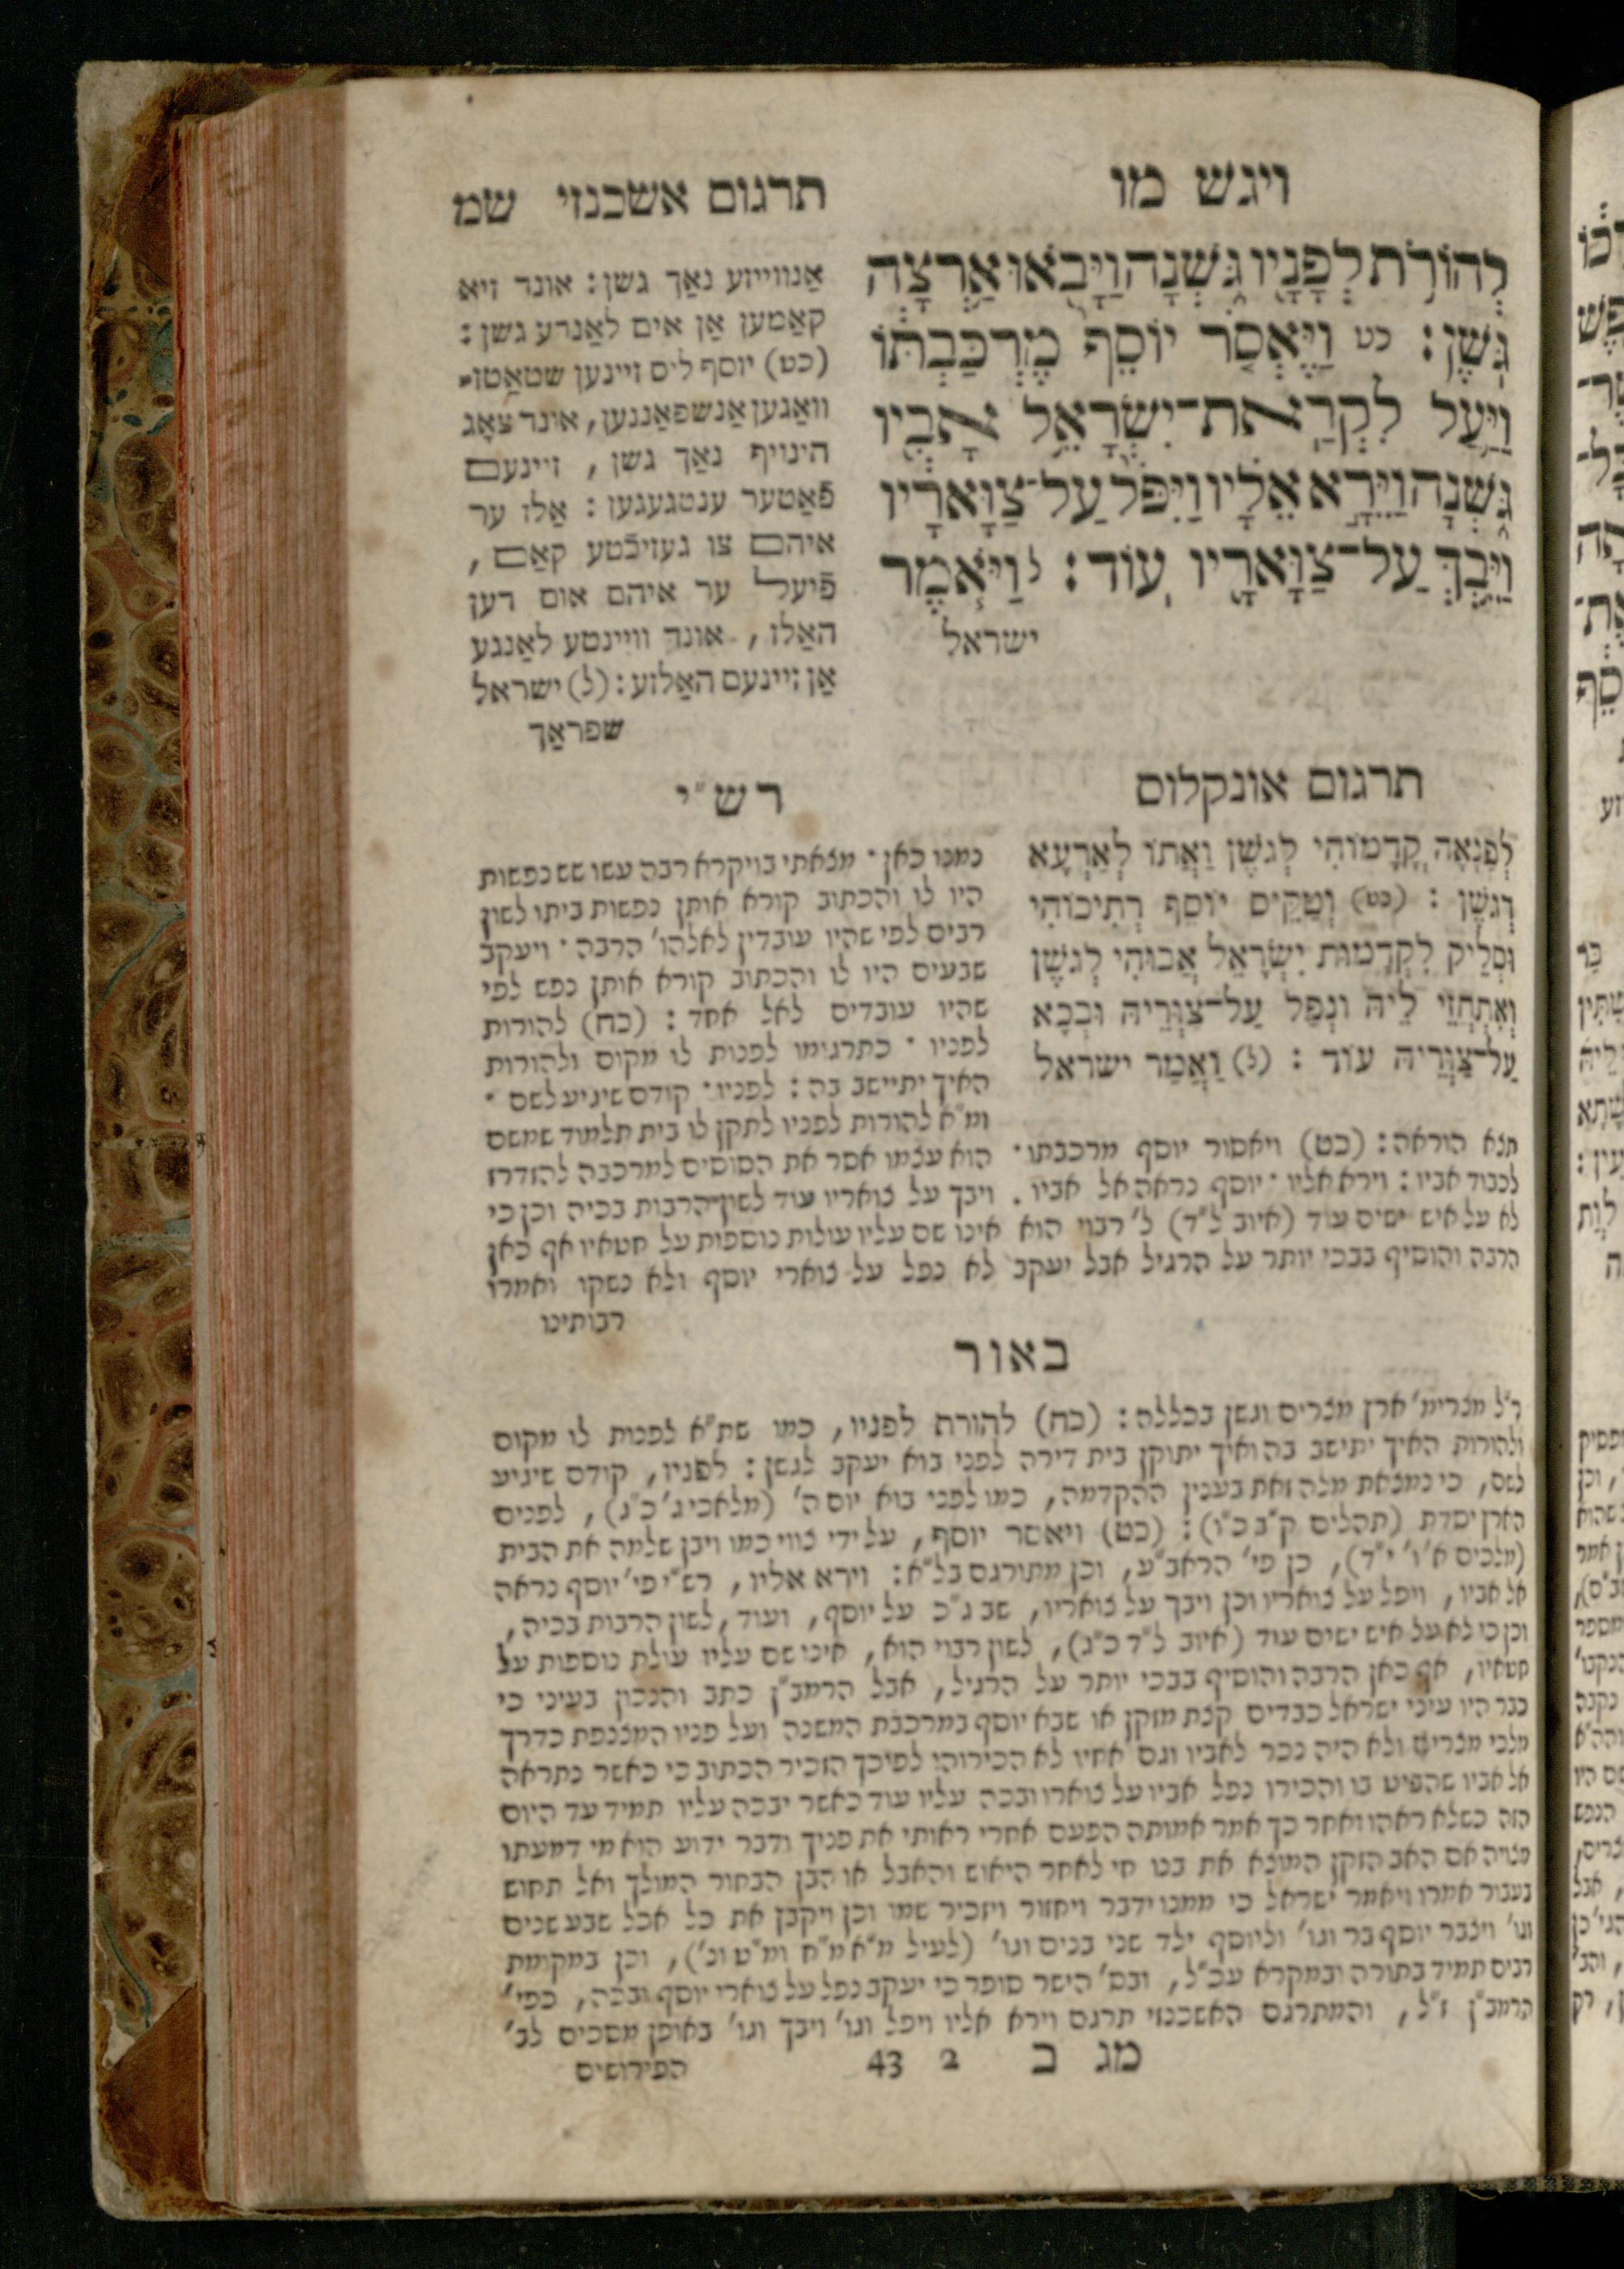 ויגש מו
תרגום אשכנזי שמ
לְהוֹרֹת לְפָנָיו גֹּשְׁנָה וַיָּבֹאוּ אַרְצָה
גֹּשֶׁן: כט וַיֶּאְסֹר יוֹסֵף מֶרְכַּבְתּוֹ
וַיַּעַל לִקְרַאת־יִשְׂרָאֵל אָבִיו
גֹּשְׁנָה וַיֵּרָא אֵלָיו וַיִּפֹּל עַל־צַוָּארָיו
וַיֵּבְךְּ עַל־צַוָּארָיו עוֹד: ל וַיֹּאמֶר
ישראל
אַנווייזע נאַך גשן: אונד זיא
קאַמען אַן אים לאַנדע גשן:
(כט) יוסף ליס זיינען שטאַטז־
וואַגען אַנשפאַננען, אונד צאָג
הינויף נאַך גשן, זיינעם
פֿאַטער ענטגעגען: אַלז ער
איהם צו געזיכֿטע קאַם,
פֿיעל ער איהם אום דען
האַלז, אונד וויינטע לאַנגע
אַן זיינעם האַלזע: (ל) ישראל
שפראַך
תרגום אונקלוס
לְפַנָּאָה קָדָמוֹהִי לְגשֶׁן וַאֲתוֹ לְאַרְעָא
דְגשֶׁן: (כט) וְטַקֵּיס יוֹסֵף רְתִיכוֹהִי
וּסְלֵיק לִקְדָמוּת יִשְׂרָאֵל אֲבוּהִי לְגשֶׁן
וְאִתְחֲזֵי לֵיהּ וּנְפַל עַל־צַוְּרֵיהּ וּבְכָא
עַל־צַוְּרֵיהּ עוֹד: (ל) וַאֲמַר ישראל
רש״י
כמנו כאן· מצאתי בויקרא רבה עשו שש נפשות
היו לו והכתוב קורא אותן נפשות ביתו לשון
רבים לפי שהיו עובדין לאלהו' הרבה· ויעקב
שבעים היו לו והכתוב קורא אותן נפש לפי
שהיו עובדים לאל אחד: (כח) להורות
לפניו· כתרגומו לפנות לו מקום ולהורות
האיך יתיישב בה: לפניו· קודם שיגיע לשם·
ומ״א להורות לפניו לתקן לו בית תלמוד שמשם
תצא הוראה: (כט) ויאסור יוסף מרכבתו· הוא עצמו אסר את הסוסים למרכבה להזדרז
לכבוד אביו: וירא אליו· יוסף נראה אל אביו. ויבך על צואריו עוד לשון הרבות בכיה וכן כי
לא על איש ישים עוד (איוב ל״ד) ל' רבוי הוא אינו שם עליו עולות נוספות על חטאיו אף כאן
הרבה והוסיף בבכי יותר על הרגיל אבל יעקב לא נפל על צוארי יוסף ולא נשקו ואמרו
רבותינו
באור
ר״ל מצרימ' ארץ מצרים וגשן בכללה: (כח) להורת לפניו, כמו שת״א לפנות לו מקום
ולהורות האיך יתישב בה ואיך יתוקן בית דירה לפני בוא יעקב לגשן: לפניו, קודם שיגיע
לשם, כי נמצאת מלה זאת בענין ההקדמה, כמו לפני בוא יום ה' (מלאכי ג' כ״ג), לפנים
הארץ יסדת (תהלים ק״ב כ״ו): (כט) ויאסר יוסף, על ידי צווי כמו ויבן שלמה את הבית
(מלכים א' ו' י״ד), כן פי' הראב״ע, וכן מתורגם בל״א: וירא אליו, רש״י פי' יוסף נראה
אל אביו, ויפל על צואריו וכן ויבך על צואריו, שב ג״כ על יוסף, ועוד, לשון הרבות בכיה,
וכן כי לא על איש ישים עוד (איוב ל״ד כ״ג), לשון רבוי הוא, אינו שם עליו עולת נוספות על
חטאיו, אף כאן הרבה והוסיף בבכי יותר על הרגיל, אבל הרמב״ן כתב והנכון בעיני כי
כבר היו עיני ישראל כבדים קצת מזקן או שבא יוסף במרכבת המשנה ועל פניו המצנפת כדרך
מלכי מצרים ולא היה נכר לאביו וגם אחיו לא הכירוהו לפיכך הזכיר הכתוב כי כאשר נתראה
אל אביו שהביט בו והכירו נפל אביו על צוארו ובכה עליו עוד כאשר יבכה עליו תמיד עד היום
הזה כשלא ראהו ואחר כך אמר אמותה הפעם אחרי ראותי את פניך ודבר ידוע הוא מי דמעתו
מצויה אם האב הזקן המוצא את בנו חי לאחר היאוש והאבל או הבן הבחור המולך ואל תחוש
בעבור אמרו ויאמר ישראל כי ממנו ידבר ויחזור ויזכיר שמו וכן ויקבץ את כל אכל שבע שנים
וגו' ויצבר יוסף בר וגו' וליוסף ילד שני בנים וגו' (לעיל מ״א מ״ח ומ״ט ונ'), וכן במקומת
רבים תמיד בתורה ובמקרא עכ״ל, ובס' הישר סופר כי יעקב נפל על צוארי יוסף ובכה, כפי'
הרמב״ן ז״ל, והמתרגם האשכנזי תרגם וירא אליו ויפל וגו' ויבך וגו' באופן מסכים לב'
הפירושים
מג ב 2 43